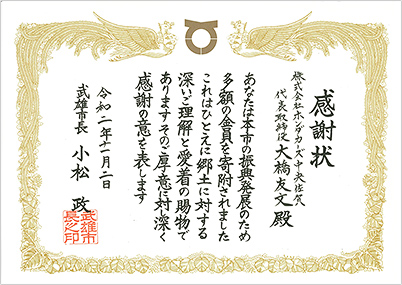 感謝状
株式会社ホンダカーズ中央佐賀
代表取締役 大橋友文 殿
あなたは本市の振興発展のため
多額の金員を寄附されました
これはひとえに郷土に対する
深いご理解と愛着の賜物で
ありますそのご厚意に対し深く
感謝の意を表します
令和二年十一月二日
武雄市長 小松 政
武雄市
長之印